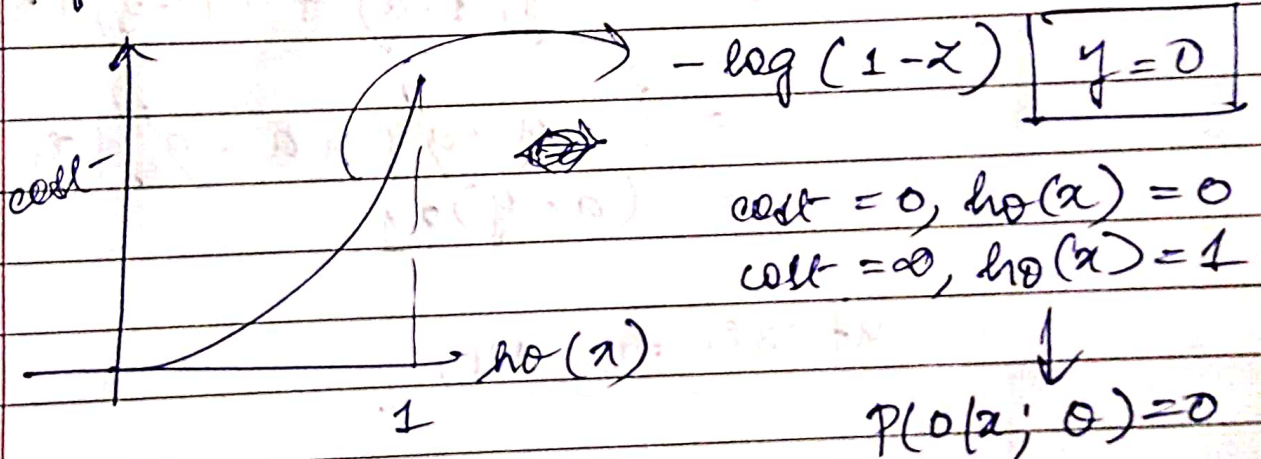 - log (1-z) y = 0
cost
cost = 0, hθ(x) = 0
cost = ∞, hθ(x) = 1
hθ(x)
1
P(0|x; θ) = 0